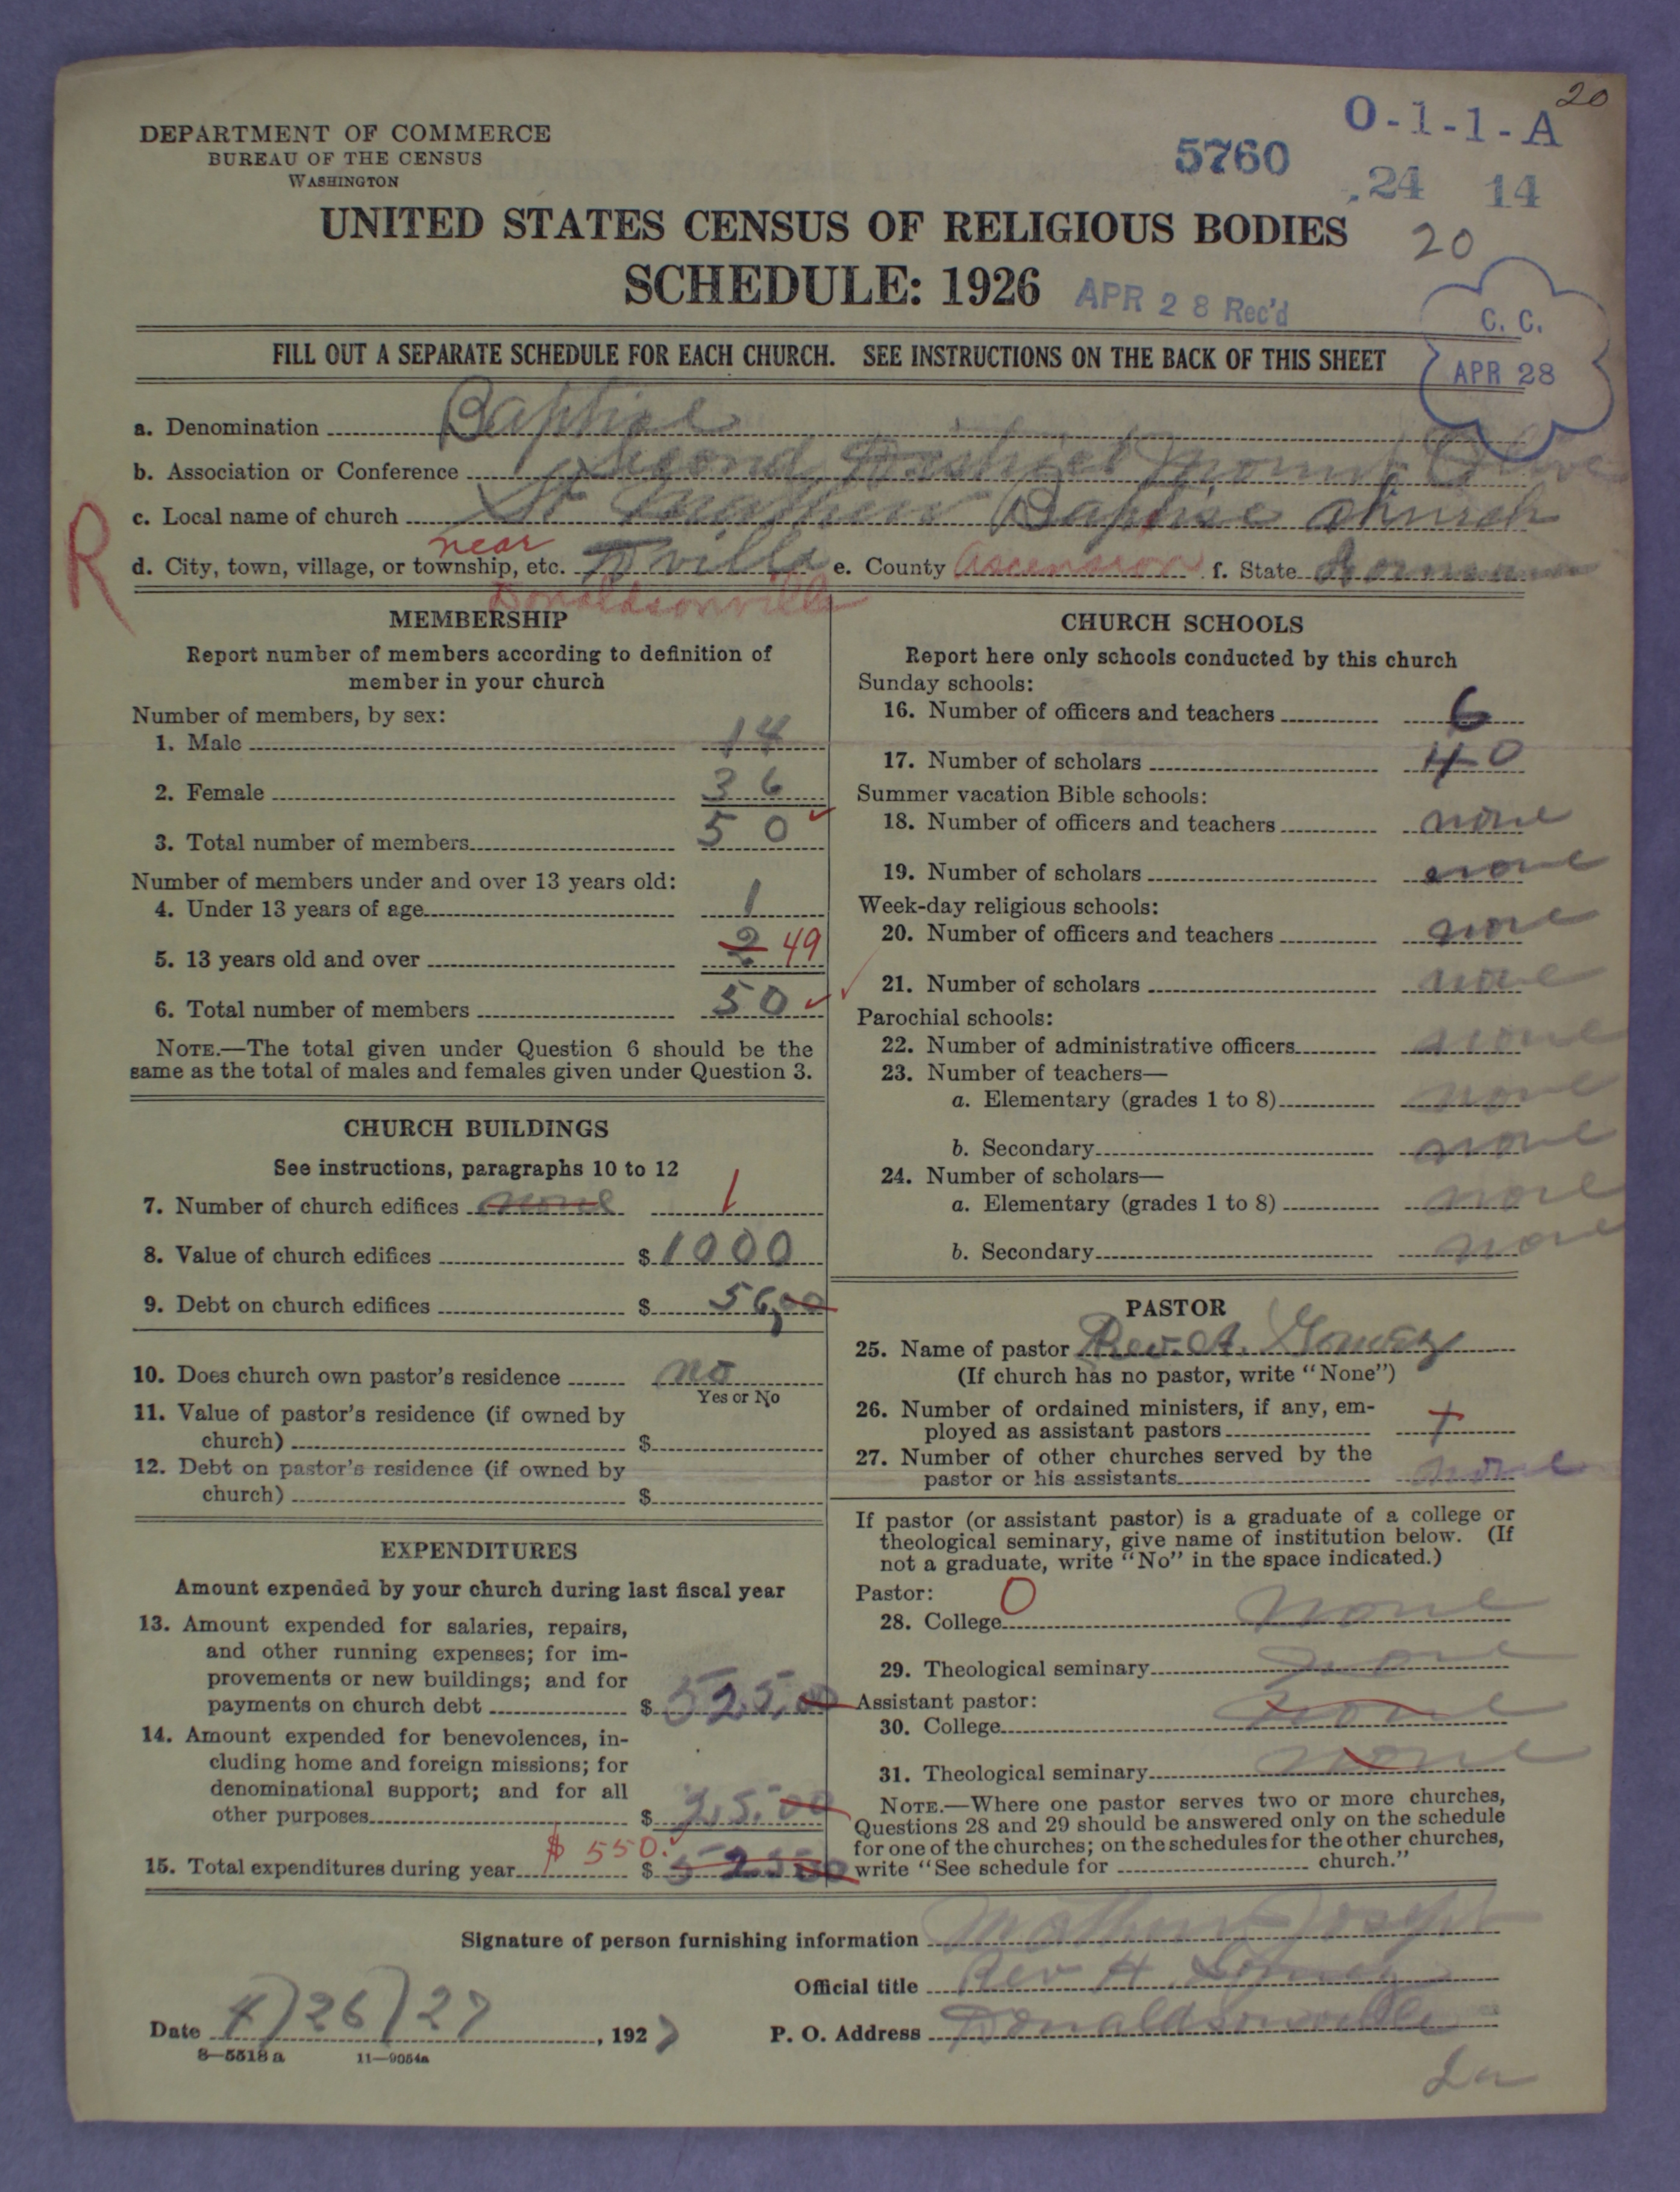 20
DEPARTMENT OF COMMERCE
BUREAU OF THE CENSUS
WASHINGTON
5760
O-1-1-A
24 14
UNITED STATES CENSUS OF RELIGIOUS BODIES
20
SCHEDULE: 1926
APR 28 Rec'd
C. C.
APR 28
FILL OUT A SEPARATE SCHEDULE FOR EACH CHURCH. SEE INSTRUCTIONS ON THE BACK OF THIS SHEET
a. Denomination Baptise
b. Association or Conference Second District Mount Olive
c. Local name of church St Mathew Baptise Church
R
near
d. City, town, village, or township, etc. Dville e. County Ascension f. State
Donaldsonville
MEMBERSHIP
Report number of members according to definition of
member in your church
Number of members, by sex:
1. Male 14
2. Female 36
3. Total number of members 50
Number of members under and over 13 years old:
4. Under 13 years of age 1
5. 13 years old and over 2 49
6. Total number of members 50
NOTE.—The total given under Question 6 should be the
same as the total of males and females given under Question 3.
CHURCH BUILDINGS
See instructions, paragraphs 10 to 12
7. Number of church edifices none 1
8. Value of church edifices $ 1000
9. Debt on church edifices $ 56,00
10. Does church own pastor's residence no
Yes or No
11. Value of pastor's residence (if owned by
church) $
12. Debt on pastor's residence (if owned by
church) $
EXPENDITURES
Amount expended by your church during last fiscal year
13. Amount expended for salaries, repairs,
and other running expenses; for im-
provements or new buildings; and for
payments on church debt $ 525,00
14. Amount expended for benevolences, in-
cluding home and foreign missions; for
denominational support; and for all
other purposes $ 25.00
$ 550.
15. Total expenditures during year $ 525 00
CHURCH SCHOOLS
Report here only schools conducted by this church
Sunday schools:
16. Number of officers and teachers 6
17. Number of scholars 40
Summer vacation Bible schools:
18. Number of officers and teachers none
19. Number of scholars none
Week-day religious schools:
20. Number of officers and teachers none
21. Number of scholars none
Parochial schools:
22. Number of administrative officers none
23. Number of teachers—
a. Elementary (grades 1 to 8) none
b. Secondary none
24. Number of scholars—
a. Elementary (grades 1 to 8) none
b. Secondary none
PASTOR
25. Name of pastor Rev. A.
(If church has no pastor, write "None")
26. Number of ordained ministers, if any, em-
ployed as assistant pastors
27. Number of other churches served by the
pastor or his assistants none
If pastor (or assistant pastor) is a graduate of a college or
theological seminary, give name of institution below. (If
not a graduate, write "No" in the space indicated.)
Pastor: O
28. College none
29. Theological seminary none
Assistant pastor:
30. College none
31. Theological seminary none
NOTE.—Where one pastor serves two or more churches,
Questions 28 and 29 should be answered only on the schedule
for one of the churches; on the schedules for the other churches,
write "See schedule for church."
Signature of person furnishing information Mathew Joseph
Official title Rev
Date 4/26/27, 1927
P. O. Address Donaldsonville
La
8—5518 a 11—9054a